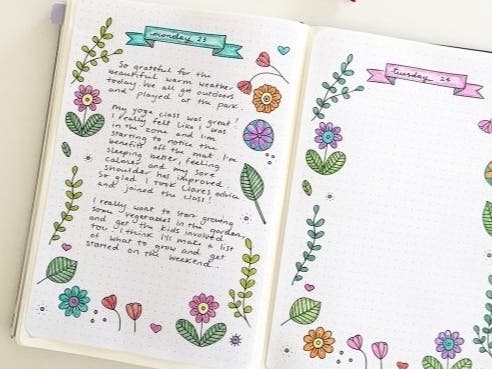 monday 23
So grateful for the
beautiful warm weather
today. We all got outdoors
and played at the park.
My yoga class was great!
I really felt like I was
in the zone and I'm
starting to notice the
benefit off the mat. I'm
sleeping better, feeling
calmer and my sore
shoulder has improved.
So glad I took Clares advice
and joined the class!
I really want to start growing
some vegetables in the garden,
and get the kids involved
too. I think I'll make a list
of what to grow and get
started on the weekend...
tuesday 24